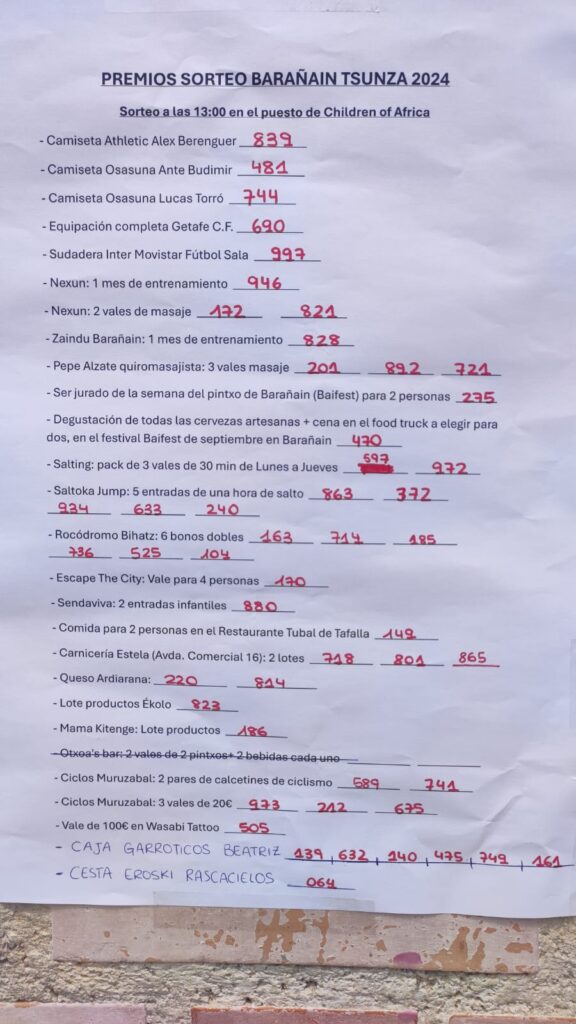 PREMIOS SORTEO BARAÑAIN TSUNZA 2024
Sorteo a las 13:00 en el puesto de Children of Africa
- Camiseta Athletic Alex Berenguer 839
- Camiseta Osasuna Ante Budimir 481
- Camiseta Osasuna Lucas Torró 744
- Equipación completa Getafe C.F. 690
- Sudadera Inter Movistar Fútbol Sala 997
- Nexun: 1 mes de entrenamiento 946
- Nexun: 2 vales de masaje 172 821
- Zaindu Barañain: 1 mes de entrenamiento 828
- Pepe Alzate quiromasajista: 3 vales masaje 201 892 721
- Ser jurado de la semana del pintxo de Barañain (Baifest) para 2 personas 275
- Degustación de todas las cervezas artesanas + cena en el food truck a elegir para
dos, en el festival Baifest de septiembre en Barañain 470
- Salting: pack de 3 vales de 30 min de Lunes a Jueves 597 972
- Saltoka Jump: 5 entradas de una hora de salto 863 372
934 633 240
- Rocódromo Bihatz: 6 bonos dobles 163 714 185
736 525 104
- Escape The City: Vale para 4 personas 170
- Sendaviva: 2 entradas infantiles 880
- Comida para 2 personas en el Restaurante Tubal de Tafalla 149
- Carnicería Estela (Avda. Comercial 16): 2 lotes 718 801 865
- Queso Ardiarana: 220 814
- Lote productos Ékolo 823
- Mama Kitenge: Lote productos 186
- Otxoa's bar: 2 vales de 2 pintxos+ 2 bebidas cada uno
- Ciclos Muruzabal: 2 pares de calcetines de ciclismo 589 741
- Ciclos Muruzabal: 3 vales de 20€ 973 212 675
- Vale de 100€ en Wasabi Tattoo 505
- CAJA GARROTICOS BEATRIZ 139, 632, 140, 475, 749, 161
- CESTA EROSKI RASCACIELOS 064